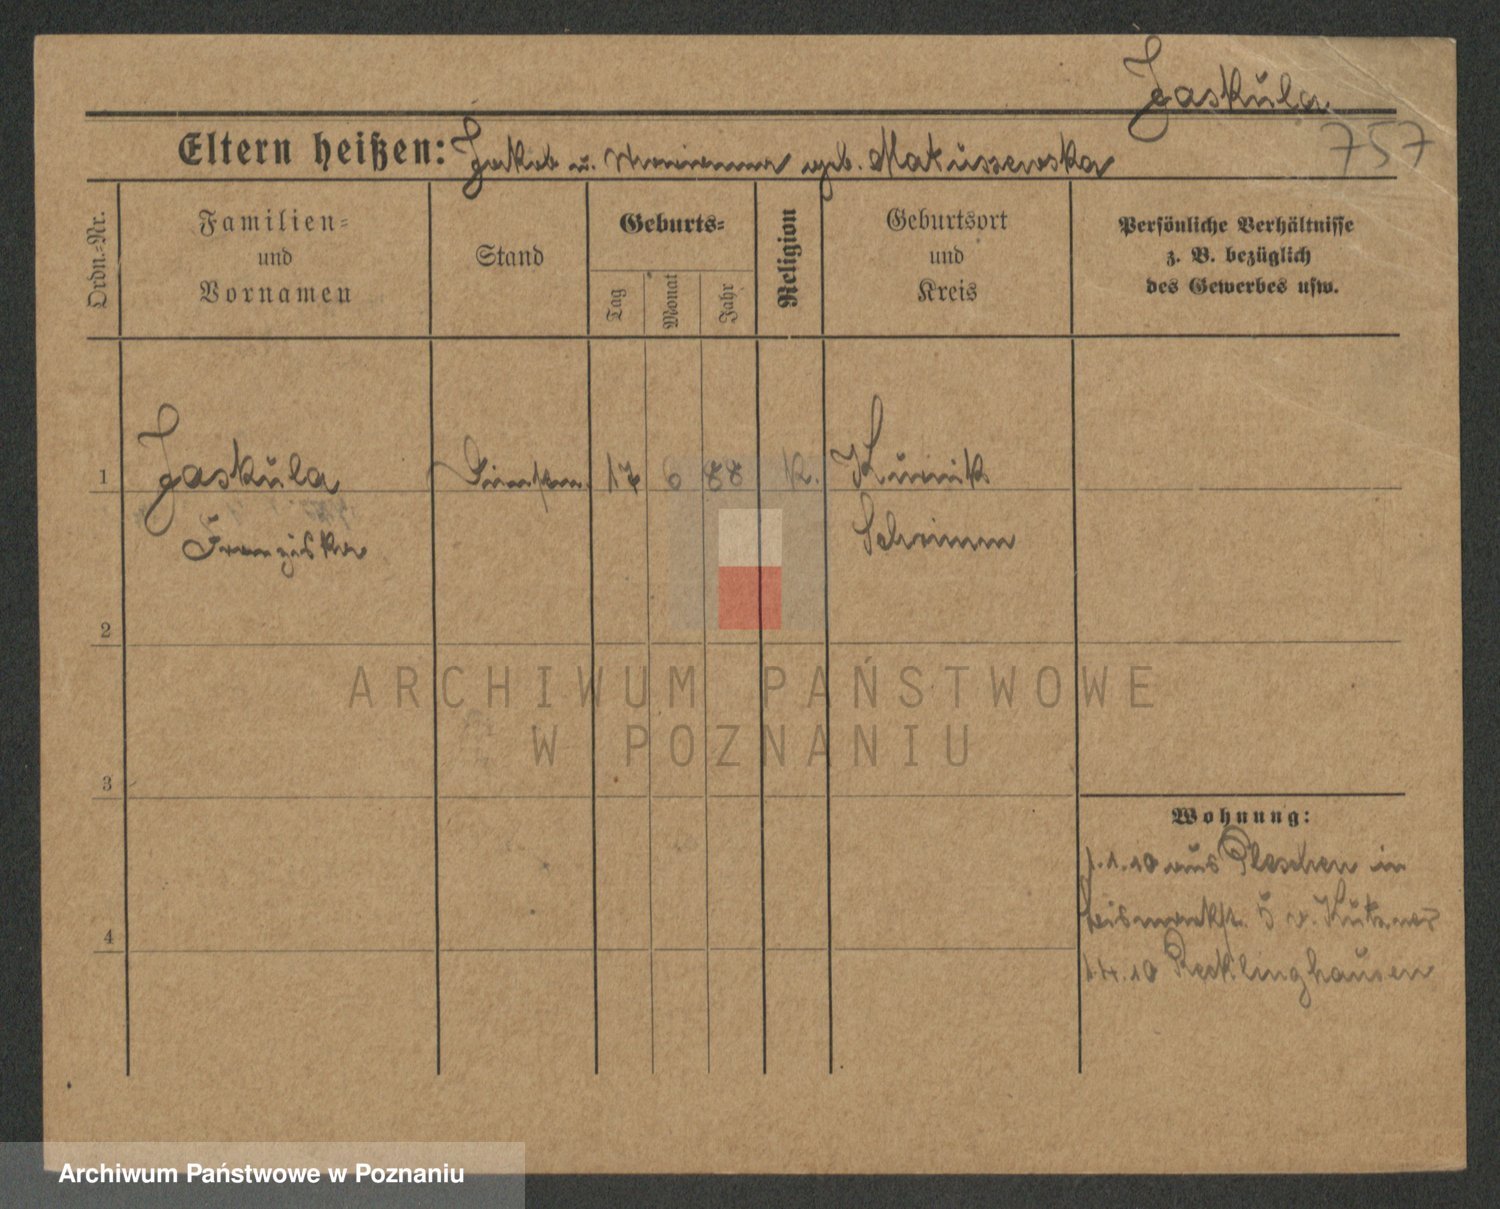 Jaskula
757
Eltern heißen: Jakob u. Marianna geb. Matuszewska
Ordn.-Nr.
Familien-
und
Vornamen
Stand
Geburts-
Tag
Monat
Jahr
Religion
Geburtsort
und
Kreis
Persönliche Verhältnisse
z. B. bezüglich
des Gewerbes usw.
1
Jaskula
17 6 88 K. Kurnik
Franziska
Schrimm
2
ARCHIWUM PAŃSTWOWE
W POZNANIU
3
Wohnung:
1.1.10 aus Pleschen in
Bismarckstr. 5 v.
4
1.4.10 Recklinghausen
Archiwum Państwowe w Poznaniu